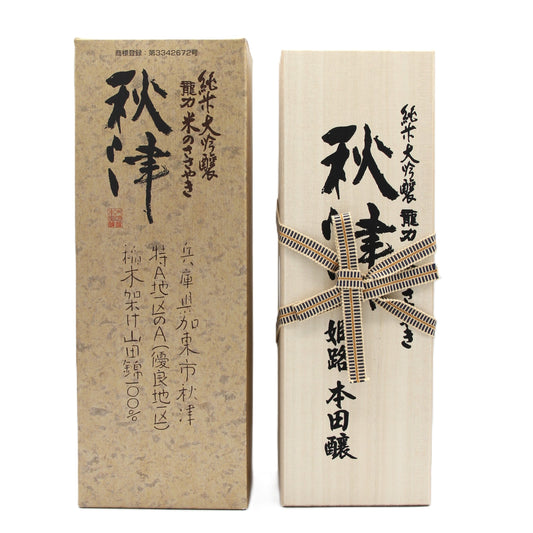 商標登録：第3342672号
純米大吟醸
龍力 米のささやき
秋津
兵庫県加東市秋津
特A地区のA(優良地区)
稲木架け山田錦一〇〇％
純米大吟醸 龍力
さやき
秋津
姫路 本田釀